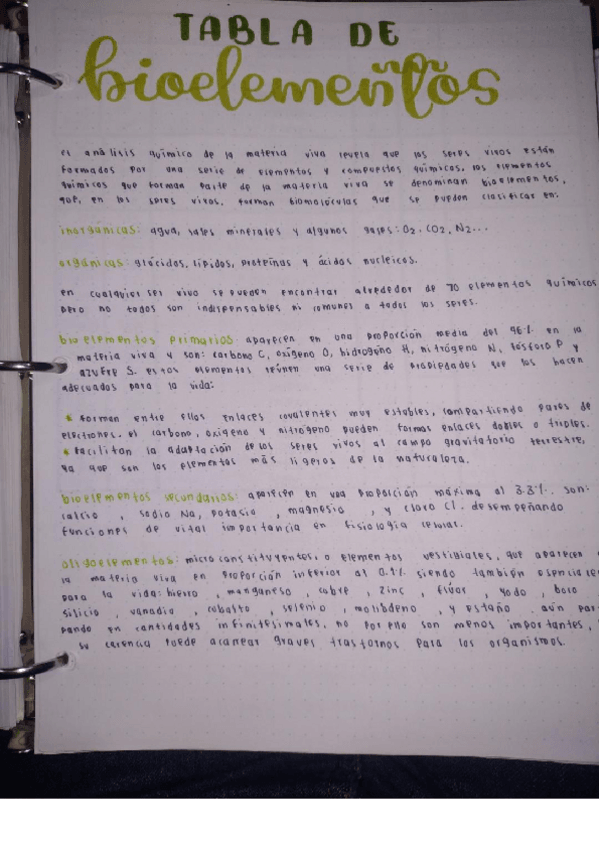 TABLA DE
bioelementos
el análisis químico de la materia viva revela que los seres vivos están
formados por una serie de elementos y compuestos químicos, los elementos
químicos que forman parte de la materia viva se denominan bioelementos,
que, en los seres vivos, forman biomoléculas que se pueden clasificar en:
inorgánicas: agua, sales minerales y algunos gases: O2, CO2, N2...
orgánicas: glúcidos, lípidos, proteínas y ácidos nucleicos.
en cualquier ser vivo se pueden encontrar alrededor de 70 elementos químicos
pero no todos son indispensables ni comunes a todos los seres.
bioelementos primarios: aparecen en una proporción media del 96% en la
materia viva y son: carbono C, oxígeno O, hidrógeno H, nitrógeno N, fósforo P y
azufre S. estos elementos reúnen una serie de propiedades que los hacen
adecuados para la vida:
forman entre ellos enlaces covalentes muy estables, compartiendo pares de
electrones. el carbono, oxígeno y nitrógeno pueden formas enlaces dobles o triples.
facilitan la adaptación de los seres vivos al campo gravitatorio terrestre,
ya que son los elementos más ligeros de la naturaleza.
bioelementos secundarios: aparecen en una proporción máxima al 3.3%. son:
calcio , sodio Na, potasio , magnesio , y cloro Cl. desempeñando
funciones de vital importancia en fisiología celular.
oligoelementos: micro constituyentes, o elementos vestigiales, que aparecen
la materia viva en proporción inferior al 0.1% siendo también esencia
para la vida: hierro , manganeso , cobre , zinc , flúor , yodo , boro
silicio , vanadio , cobalto , selenio , molibdeno , y estaño . aún par
pando en cantidades infinitesimales, no por ello son menos importantes,
su carencia puede acarrear graves trastornos para los organismos.